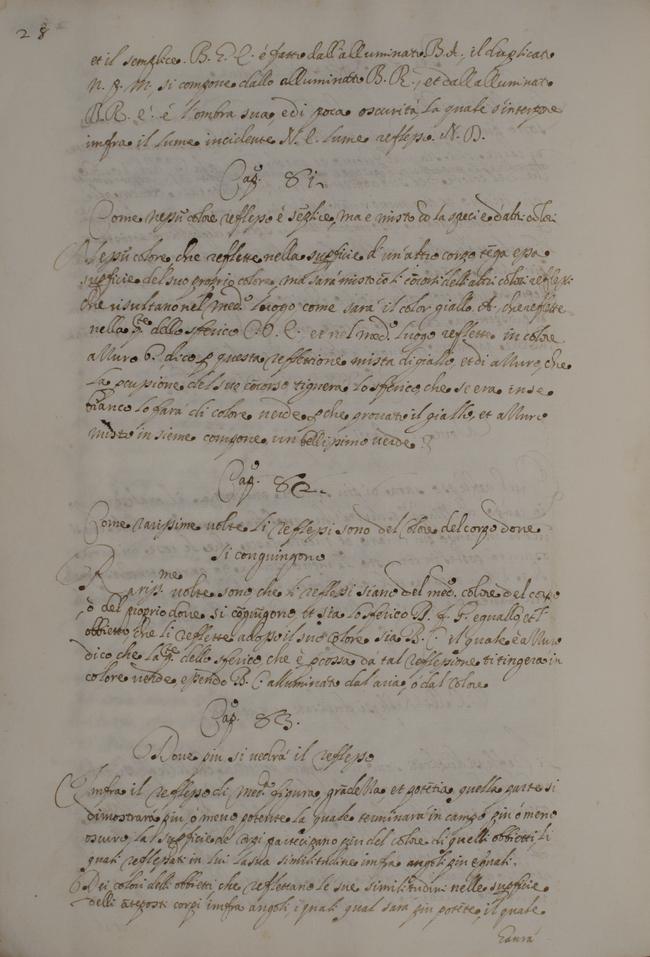 28
et il semplice. B. E. C. é fatto dall'alluminato B. A, il duplicato
N. &. M, si compone dallo alluminato B. R, et dall alluminato
é l'ombra sua, e di poca oscurità, la quale s'interpone
imfra il lume incidente N. C. lume reflesso. N. D.
Capº. 81.
Come nessũ colore reflesso é sẽplice, ma é misto cõ la specie d'altri colori
Nessũ colore, che reflette nella supficie d'un'altro corpo tẽga essa
supficie del suo proprio colore, ma sará misto cõ li cõcorsi delli altri colori reflessi
che risultano nel medº. luogo come sará il color giallo. A. che reflette
nella pte dello sferico C. O. E. et nel medº. luogo reflette in colore
azzuro B. dico p questa reflessione mista di giallo, et di azzuro, che
la pcussione del suo cõcorso tignera lo sferico, che se era in se
bianco lo fará di colore verde, pche provato il giallo, et azzuro
misto insieme compone un bellissimo verde
Capº. 82.
Come rarissime volte li reflessi sono del colore del corpo dove
si conguingono
Rarissme volte sono che li reflessi siano del medº. colore del corpo
ò del proprio dove si cõgiũgono, et sia lo sferico D. f. G. e quallo, et l'
obbietto che li reflette adosso il suo colore sia B. C. il quale é azzuro
dico che la pte. dello sferico, che é pcossa da tal reflessione ti tingerà in
colore verde, essendo B. C. alluminato dal'aria, ó dal colore
Capº. 83.
Dove piu si vedrá il reflesso
Imfra il reflesso di medª. figura, grãdezza, et potẽtia, quella parte si
dimostrará piu, ó meno potente la quale terminará in campo piu ó meno
oscuro, la supficie de corpi partecipano piu del colore di quelli obbietti li
quali reflessati in lui la sua similitudine imfra angoli piu equali.
Dei colori delli obbietti che reflettano le sue similitudini nelle supficie
delli ãteposti corpi imfra angoli iquali qual sará piu potẽte, il quale